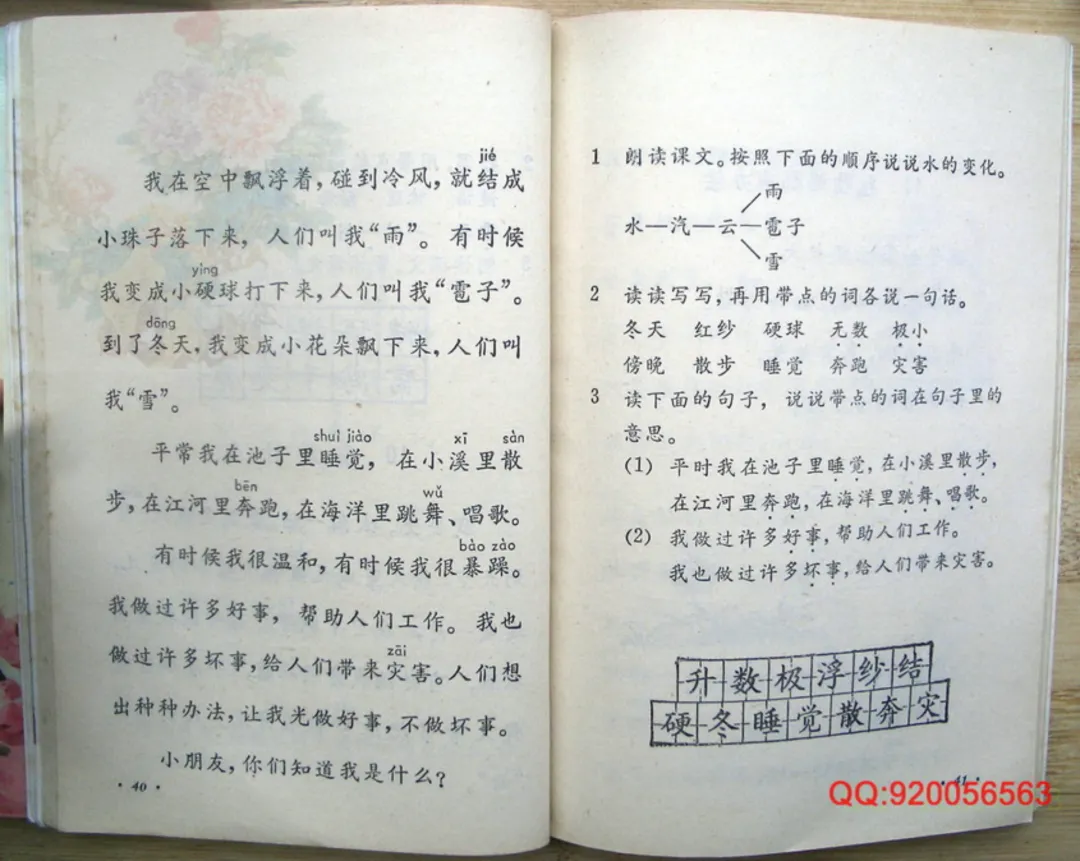 jié
我在空中飘浮着，碰到冷风，就结成
小珠子落下来，人们叫我“雨”。有时候
yìng
我变成小硬球打下来，人们叫我“雹子”。
dōng
到了冬天，我变成小花朵飘下来，人们叫
我“雪”。
shuì jiào xī sàn
平常我在池子里睡觉，在小溪里散
步，在江河里奔跑，在海洋里跳舞、唱歌。
bēn wǔ
有时候我很温和，有时候我很暴躁。
bào zào
我做过许多好事，帮助人们工作。我也
zāi
做过许多坏事，给人们带来灾害。人们想
出种种办法，让我光做好事，不做坏事。
小朋友，你们知道我是什么？
·40·
1 朗读课文。按照下面的顺序说说水的变化。
雨
水—汽—云—雹子
雪
2 读读写写，再用带点的词各说一句话。
冬天 红纱 硬球 无数 极小
傍晚 散步 睡觉 奔跑 灾害
3 读下面的句子，说说带点的词在句子里的
意思。
(1) 平时我在池子里睡觉，在小溪里散步，
在江河里奔跑，在海洋里跳舞、唱歌。
(2) 我做过许多好事，帮助人们工作。
我也做过许多坏事，给人们带来灾害。
升数极浮纱结
硬冬睡觉散奔灾
·41·
QQ:920056563